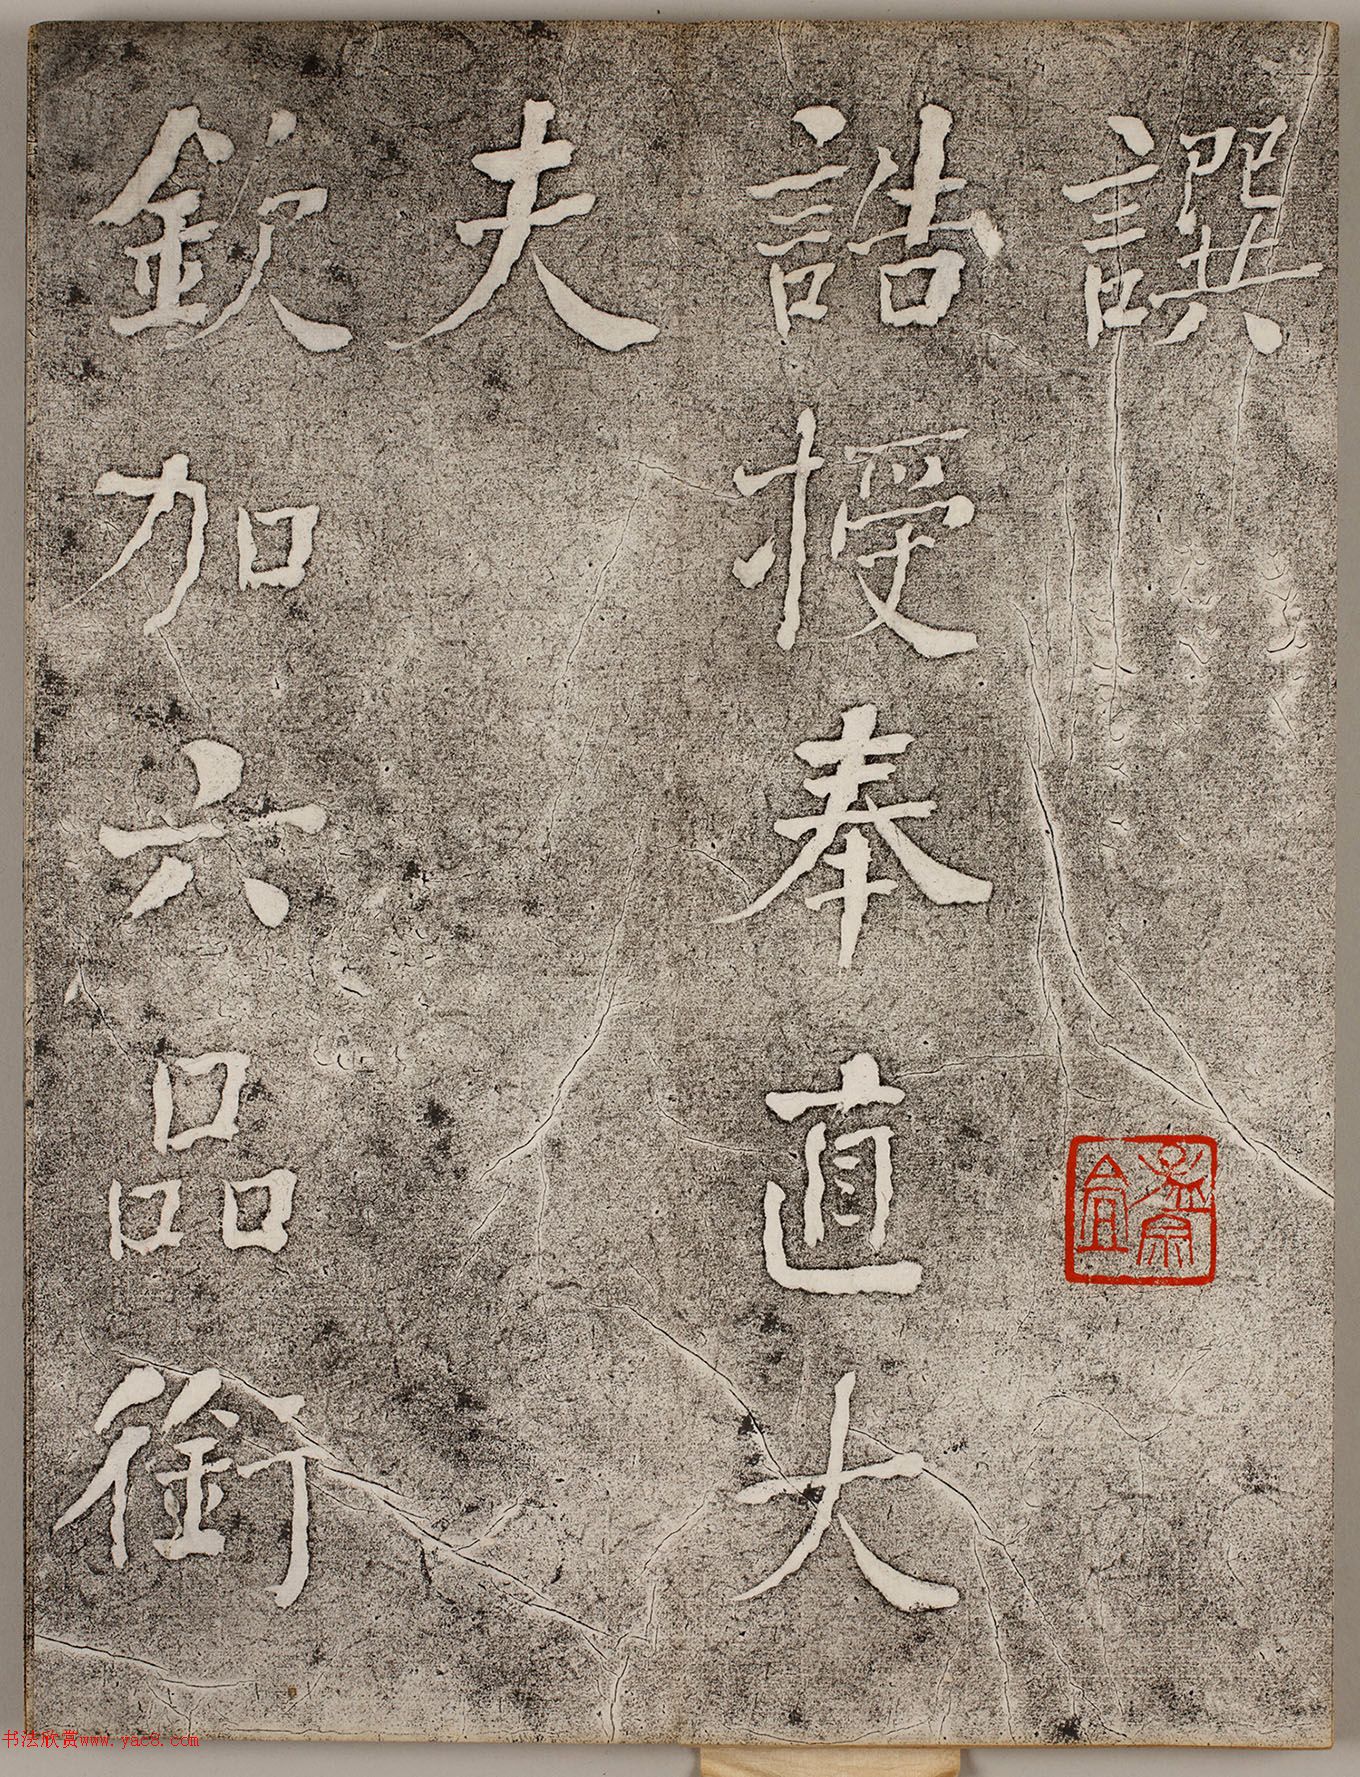 譔
誥授奉直大
夫
欽加六品銜
书法欣赏www.yac8.com